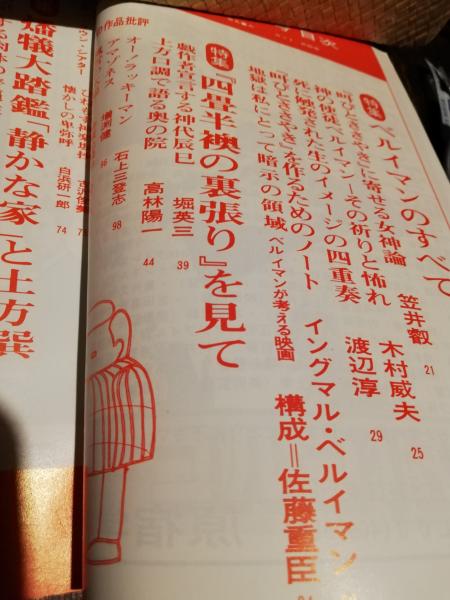 目次
特集 ベルイマンのすべて
叫びとささやきに寄せる女神論 笠井叡 21
神の使徒ベルイマン—その祈りと怖れ 木村威夫 25
死に触発された生のイメージの四重奏 渡辺淳 29
「叫びとささやき」を作るためのノート イングマル・ベルイマン
地獄は私にとって暗示の領域 ベルイマンが考える映画 構成=佐藤重臣
特集 『四畳半襖の裏張り』を見て
戯作者宣言する神代辰巳 堀英三 39
土方口調で語る奥の院 高林陽一 44
作品批評
オー!ラッキーマン 石上三登志 98
アマゾネス
懐かしの卑弥呼 白浜研一郎 74
燔犠大踏鑑「静かな家」と土方巽